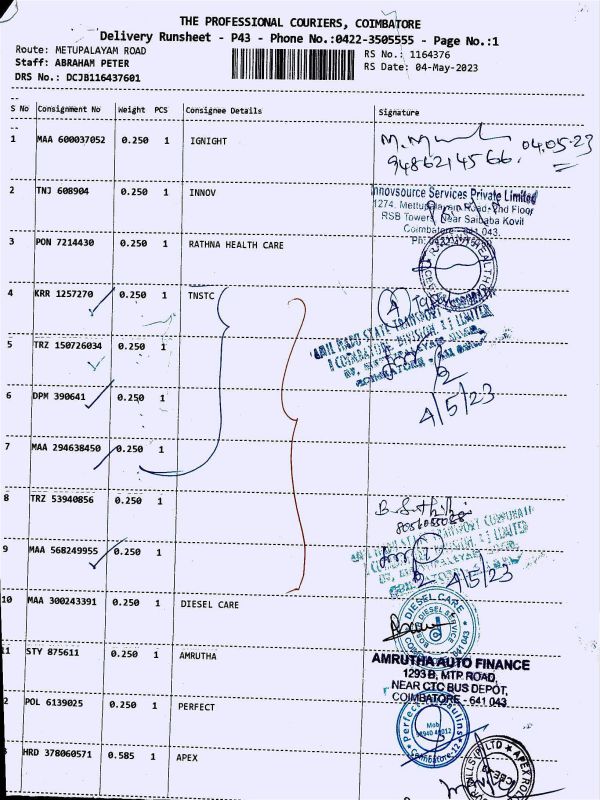 THE PROFESSIONAL COURIERS, COIMBATORE
Delivery Runsheet - P43 - Phone No.:0422-3505555 - Page No.:1
Route: METUPALAYAM ROAD RS No.: 1164376
Staff: ABRAHAM PETER RS Date: 04-May-2023
DRS No.: DCJB116437601
S No Consignment No Weight PCS Consignee Details Signature
1 MAA 600037052 0.250 1 IGNIGHT
04.05.23
9486214566.
2 TNJ 608904 0.250 1 INNOV
Innovsource Services Private Limited
1274, Mettupalayam Road, 2nd Floor
RSB Towers, Near Saibaba Kovil
Coimbatore - 641 043.
3 PON 7214430 0.250 1 RATHNA HEALTH CARE
4 KRR 1257270 0.250 1 TNSTC
4
5 TRZ 150726034 0.250 1
6 DPM 390641 0.250 1
4/5/23
7 MAA 294638450 0.250 1
8 TRZ 53940856 0.250 1
9 MAA 568249955 0.250 1
4/5/23
10 MAA 300243391 0.250 1 DIESEL CARE
DIESEL CARE
11 STY 875611 0.250 1 AMRUTHA
AMRUTHA AUTO FINANCE
1293 B, MTP ROAD,
NEAR CTC BUS DEPOT,
COIMBATORE - 641 043
2 POL 6139025 0.250 1 PERFECT
Mob
Coimbatore-12
3 HRD 378060571 0.585 1 APEX